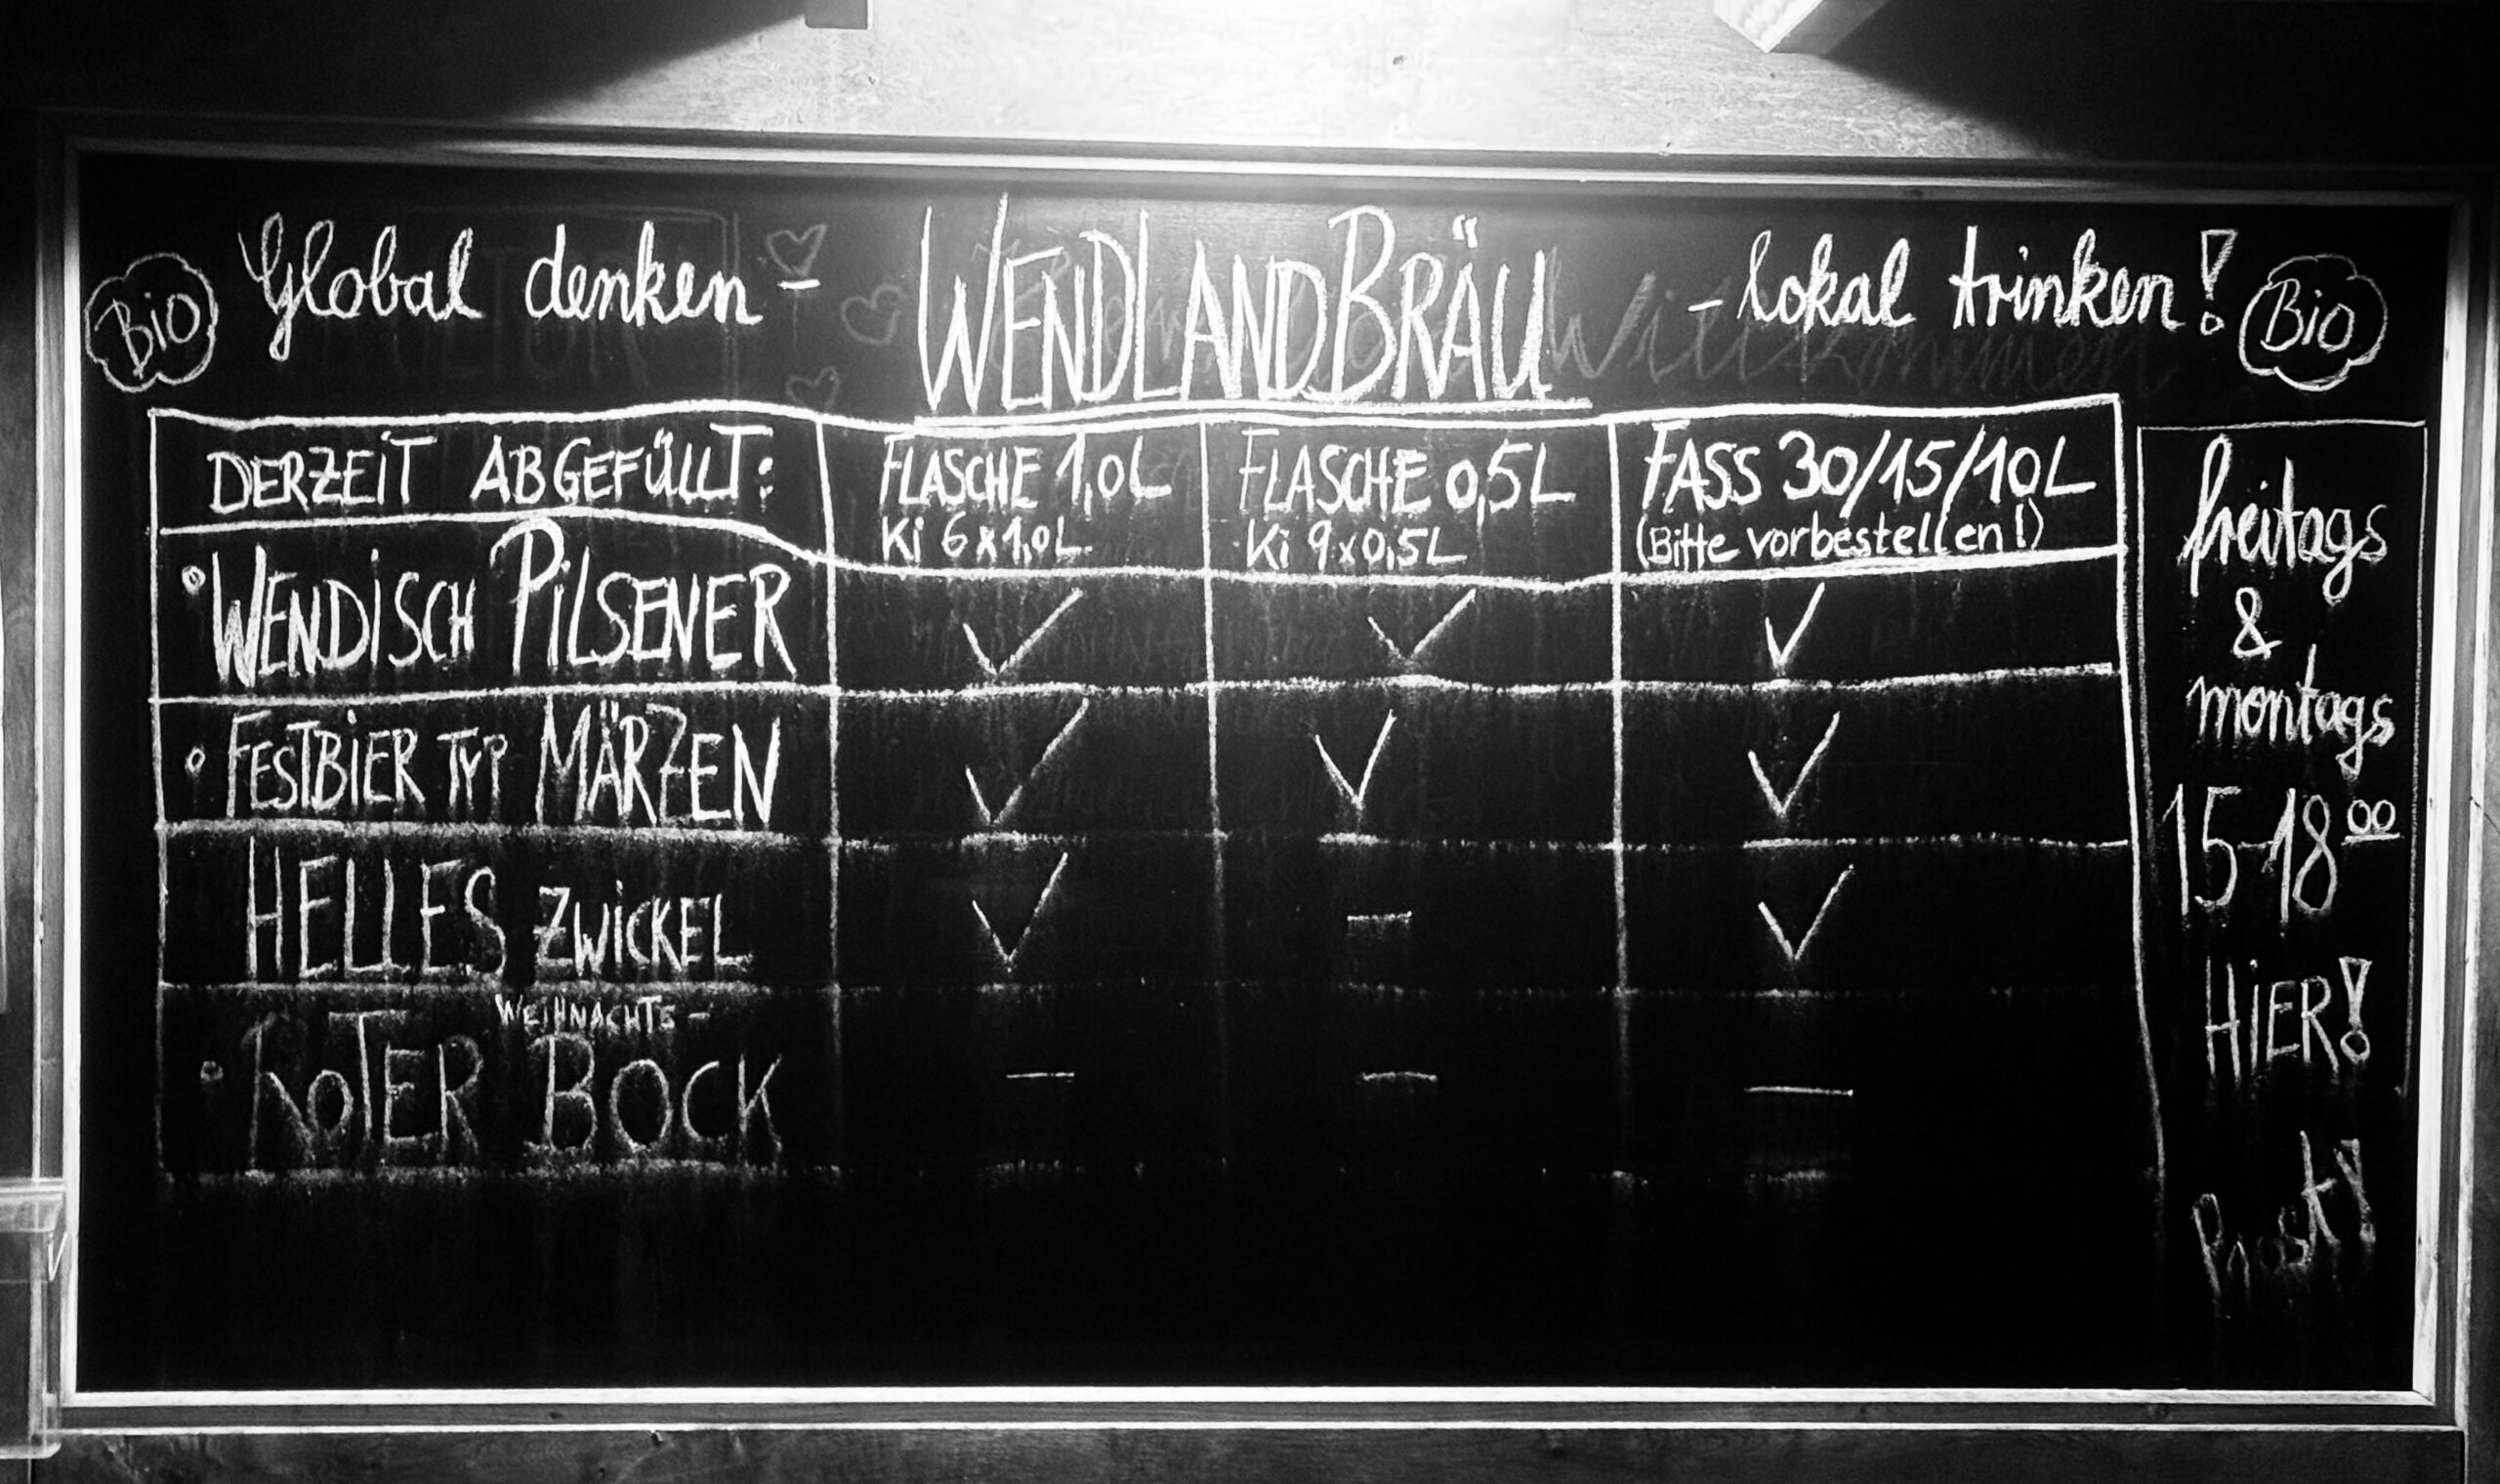 Bio Global denken - WENDLANDBRÄU - lokal trinken! Bio
Willkommen
DERZEIT ABGEFÜLLT: FLASCHE 1,0L FLASCHE 0,5L FASS 30/15/10L
Ki 6x1,0L Ki 9x0,5L (Bitte vorbestellen!)
WENDISCH PILSENER ✓ ✓ ✓
FESTBIER TYP MÄRZEN ✓ ✓ ✓
HELLES ZWICKEL ✓ – ✓
WEIHNACHTS-
ROTER BOCK – – –
freitags
&
montags
15-18 00
HIER!
Prost!